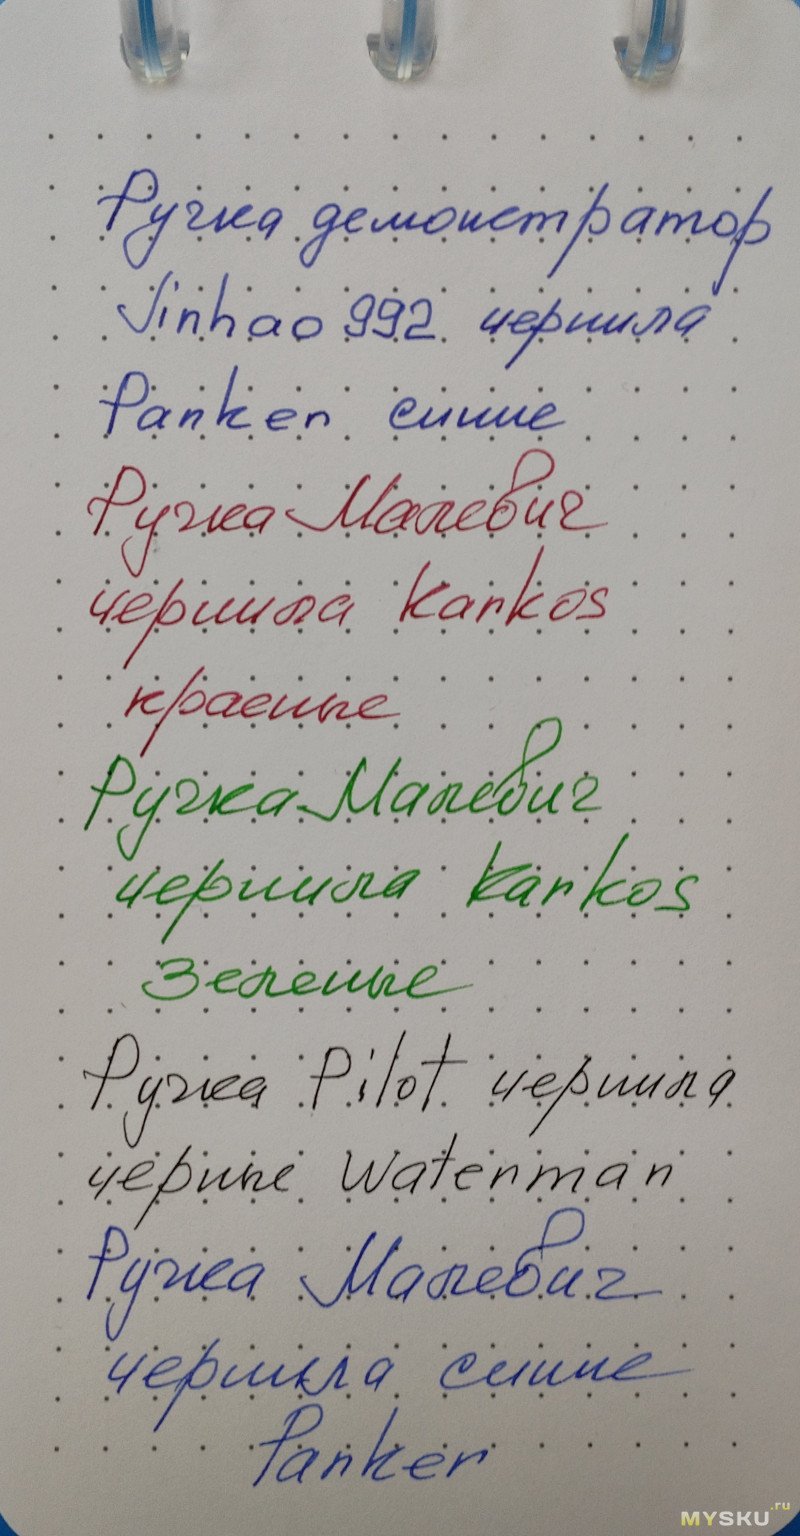 Ручка демонстратор
Jinhao 992 чернила
Parker синие
Ручка Малевич
чернила Karkos
красные
Ручка Малевич
чернила Karkos
зеленые
Ручка Pilot чернила
черные Waterman
Ручка Малевич
чернила синие
Parker
MYSKU.ru